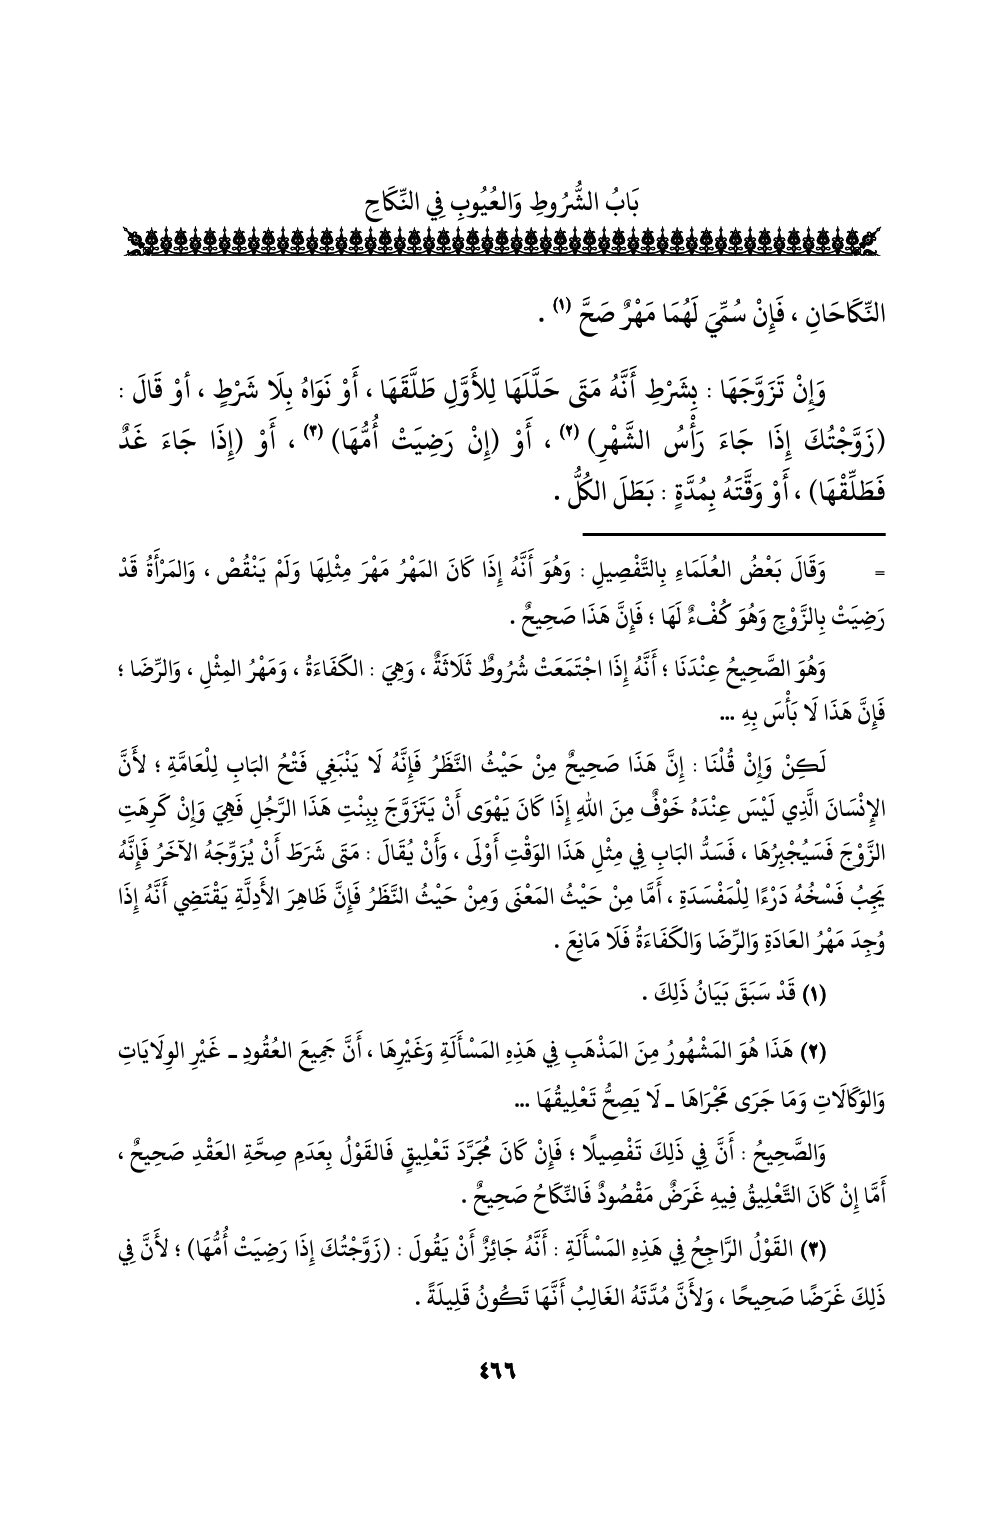 بَابُ الشُّرُوطِ وَالعُيُوبِ فِي النِّكَاحِ
النِّكَاحَانِ ، فَإِنْ سُمِّيَ لَهُمَا مَهْرٌ صَحَّ (١) .
وَإِنْ تَزَوَّجَهَا : بِشَرْطِ أَنَّهُ مَتَى حَلَّلَهَا لِلأَوَّلِ طَلَّقَهَا ، أَوْ نَوَاهُ بِلَا شَرْطٍ ، أوْ قَالَ :
(زَوَّجْتُكَ إِذَا جَاءَ رَأْسُ الشَّهْرِ) (٢) ، أَوْ (إِنْ رَضِيَتْ أُمُّهَا) (٣) ، أَوْ (إِذَا جَاءَ غَدٌ
فَطَلِّقْهَا) ، أَوْ وَقَّتَهُ بِمُدَّةٍ : بَطَلَ الكُلُّ .
= وَقَالَ بَعْضُ العُلَمَاءِ بِالتَّفْصِيلِ : وَهُوَ أَنَّهُ إِذَا كَانَ المَهْرُ مَهْرَ مِثْلِهَا وَلَمْ يَنْقُصْ ، وَالمَرْأَةُ قَدْ
رَضِيَتْ بِالزَّوْجِ وَهُوَ كُفْءٌ لَهَا ؛ فَإِنَّ هَذَا صَحِيحٌ .
وَهُوَ الصَّحِيحُ عِنْدَنَا ؛ أَنَّهُ إِذَا اجْتَمَعَتْ شُرُوطٌ ثَلَاثَةٌ ، وَهِيَ : الكَفَاءَةُ ، وَمَهْرُ المِثْلِ ، وَالرِّضَا ؛
فَإِنَّ هَذَا لَا بَأْسَ بِهِ ...
لَكِنْ وَإِنْ قُلْنَا : إِنَّ هَذَا صَحِيحٌ مِنْ حَيْثُ النَّظَرُ فَإِنَّهُ لَا يَنْبَغِي فَتْحُ البَابِ لِلْعَامَّةِ ؛ لأَنَّ
الإِنْسَانَ الَّذِي لَيْسَ عِنْدَهُ خَوْفٌ مِنَ اللهِ إِذَا كَانَ يَهْوَى أَنْ يَتَزَوَّجَ بِبِنْتِ هَذَا الرَّجُلِ فَهِيَ وَإِنْ كَرِهَتِ
الزَّوْجَ فَسَيُجْبِرُهَا ، فَسَدُّ البَابِ فِي مِثْلِ هَذَا الوَقْتِ أَوْلَى ، وَأَنْ يُقَالَ : مَتَى شَرَطَ أَنْ يُزَوِّجَهُ الآخَرُ فَإِنَّهُ
يَجِبُ فَسْخُهُ دَرْءًا لِلْمَفْسَدَةِ ، أَمَّا مِنْ حَيْثُ المَعْنَى وَمِنْ حَيْثُ النَّظَرُ فَإِنَّ ظَاهِرَ الأَدِلَّةِ يَقْتَضِي أَنَّهُ إِذَا
وُجِدَ مَهْرُ العَادَةِ وَالرِّضَا وَالكَفَاءَةُ فَلَا مَانِعَ .
(١) قَدْ سَبَقَ بَيَانُ ذَلِكَ .
(٢) هَذَا هُوَ المَشْهُورُ مِنَ المَذْهَبِ فِي هَذِهِ المَسْأَلَةِ وَغَيْرِهَا ، أَنَّ جَمِيعَ العُقُودِ ـ غَيْرِ الوِلَايَاتِ
وَالوَكَالَاتِ وَمَا جَرَى مَجْرَاهَا ـ لَا يَصِحُّ تَعْلِيقُهَا ...
وَالصَّحِيحُ : أَنَّ فِي ذَلِكَ تَفْصِيلًا ؛ فَإِنْ كَانَ مُجَرَّدَ تَعْلِيقٍ فَالقَوْلُ بِعَدَمِ صِحَّةِ العَقْدِ صَحِيحٌ ،
أَمَّا إِنْ كَانَ التَّعْلِيقُ فِيهِ غَرَضٌ مَقْصُودٌ فَالنِّكَاحُ صَحِيحٌ .
(٣) القَوْلُ الرَّاجِحُ فِي هَذِهِ المَسْأَلَةِ : أَنَّهُ جَائِزٌ أَنْ يَقُولَ : (زَوَّجْتُكَ إِذَا رَضِيَتْ أُمُّهَا) ؛ لأَنَّ فِي
ذَلِكَ غَرَضًا صَحِيحًا ، وَلأَنَّ مُدَّتَهُ الغَالِبُ أَنَّهَا تَكُونُ قَلِيلَةً .
٤٦٦